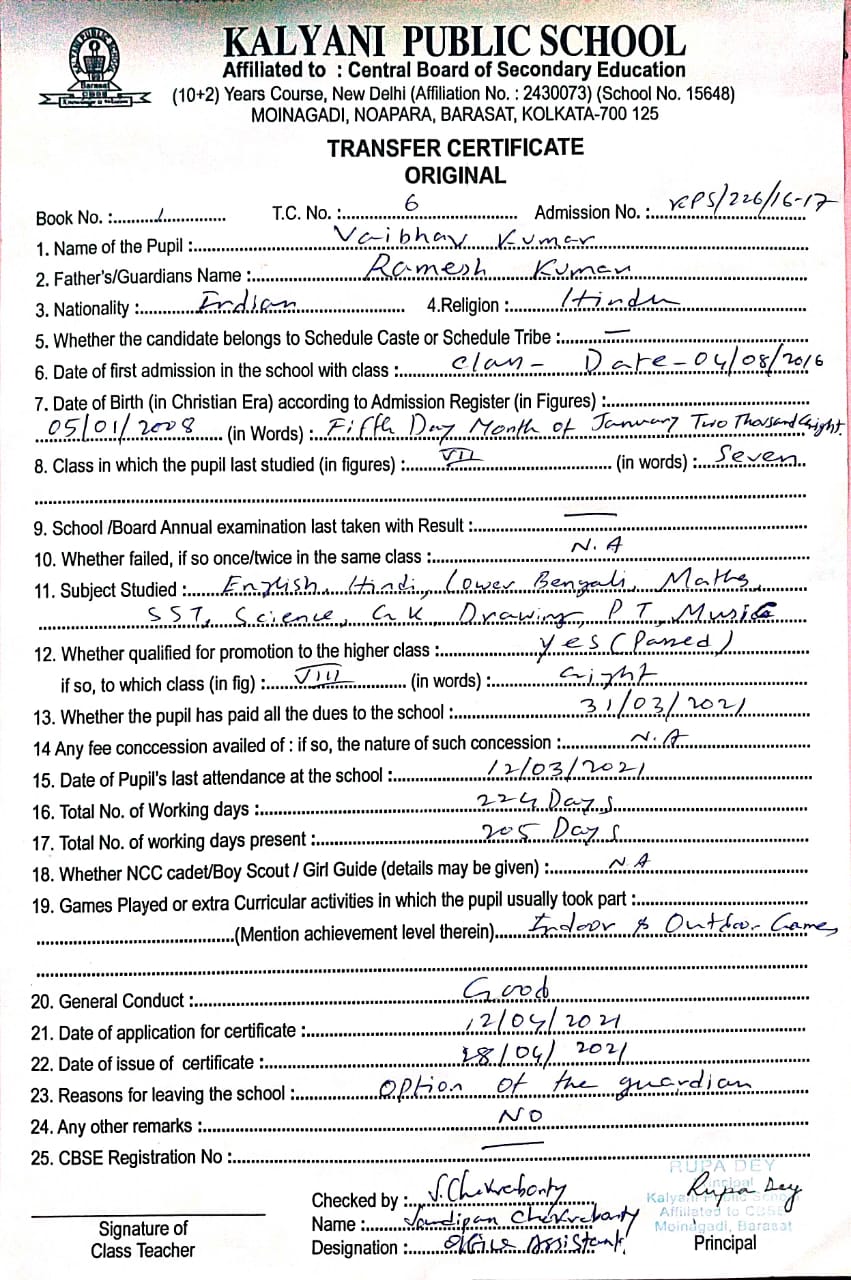 KALYANI PUBLIC SCHOOL
Affiliated to : Central Board of Secondary Education
(10+2) Years Course, New Delhi (Affiliation No. : 2430073) (School No. 15648)
MOINAGADI, NOAPARA, BARASAT, KOLKATA-700 125
KALYANI PUBLIC SCHOOL
Barasat
TRANSFER CERTIFICATE
ORIGINAL
Book No. : 1 T.C. No. : 6 Admission No. : KPS/226/16-17
1. Name of the Pupil : Vaibhav Kumar
2. Father's/Guardians Name : Ramesh Kumar
3. Nationality : Indian 4.Religion : Hindu
5. Whether the candidate belongs to Schedule Caste or Schedule Tribe : —
6. Date of first admission in the school with class : Class - Date - 04/08/2016
7. Date of Birth (in Christian Era) according to Admission Register (in Figures) :
05/01/2008 (in Words) : Fifth Day Month of January Two Thousand Eight.
8. Class in which the pupil last studied (in figures) : VII (in words) : Seven
9. School /Board Annual examination last taken with Result : —
10. Whether failed, if so once/twice in the same class : N.A
11. Subject Studied : English, Hindi, Lower Bengali, Maths,
SST, Science, GK, Drawing, PT, Music
12. Whether qualified for promotion to the higher class : Yes (Passed)
if so, to which class (in fig) : VIII (in words) : Eight
13. Whether the pupil has paid all the dues to the school : 31/03/2021
14 Any fee conccession availed of : if so, the nature of such concession : N.A
15. Date of Pupil's last attendance at the school : 12/03/2021
16. Total No. of Working days : 224 Days
17. Total No. of working days present : 205 Days
18. Whether NCC cadet/Boy Scout / Girl Guide (details may be given) : N A
19. Games Played or extra Curricular activities in which the pupil usually took part :
(Mention achievement level therein) Indoor & Outdoor Games
20. General Conduct : Good
21. Date of application for certificate : 12/04/2021
22. Date of issue of certificate : 28/04/2021
23. Reasons for leaving the school : Option of the guardian
24. Any other remarks : NO
25. CBSE Registration No : —
RUPA DEY
Principal
Kalyani Public School
Affiliated to CBSE
Moinagadi, Barasat
Rupa Dey
Principal
Checked by : S. Chekraborty
Name : Sandipan Chekraborty
Designation : Office Assistant.
Signature of
Class Teacher